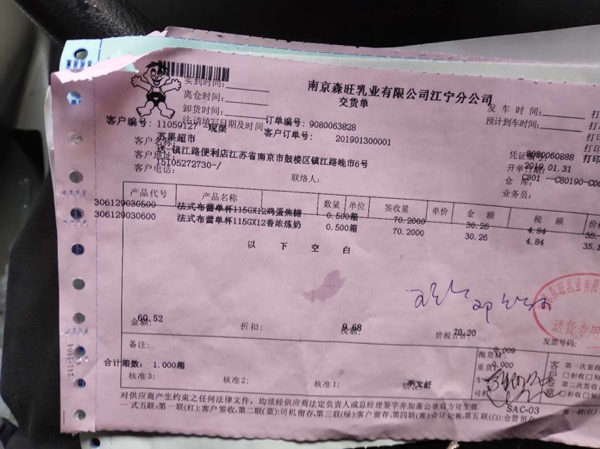 南京森旺乳业有限公司江宁分公司
交货单
买到时间:
离仓时间:
卸货时间:
注:请填写日期及时间
发车时间:
预计到车时间:
打印
订单编号: 9080063828
客户订单号: 201901300001
客户编号: 11059127 -现采
客户名称: 苏果超市
镇江路便利店江苏省南京市鼓楼区镇江路晚市6号
客户电话: 15105272730-/
联络人:
凭证编号: 9080060888
开单日期: 2019.01.31
仓库: C801 -C80190-C00
业务员:
产品代号 产品名称 数量 单位 签收量 单价 金额 税额
306129030500 法式布蕾单杯115GX12鸡蛋焦糖 0.500箱 70.2000 30.26 4.84 35.
306129030600 法式布蕾单杯115GX12香浓炼奶 0.500箱 70.2000 30.26 4.84 35.1
以下空白
金额: 60.52 折扣: 税额: 9.68 价税合计: 70.20
发票号码:
送货专用
备注:
合计箱数: 1.000箱
核准3: 核准2: 核准1: 李文舒
0.009
0.000
第一次签收
拒收
第二次签收
拒收
SAC-03
对供应商产生约束之任何法律文件,均须经供应商法定负责人或总经理签字并加盖公章方可生效.
一式五联:第一联(红):客户签收,第二联(蓝):司机留存,第三联(绿):客户留存,第四联(黄):会计记帐,第五联(白):仓管留存
241-1804